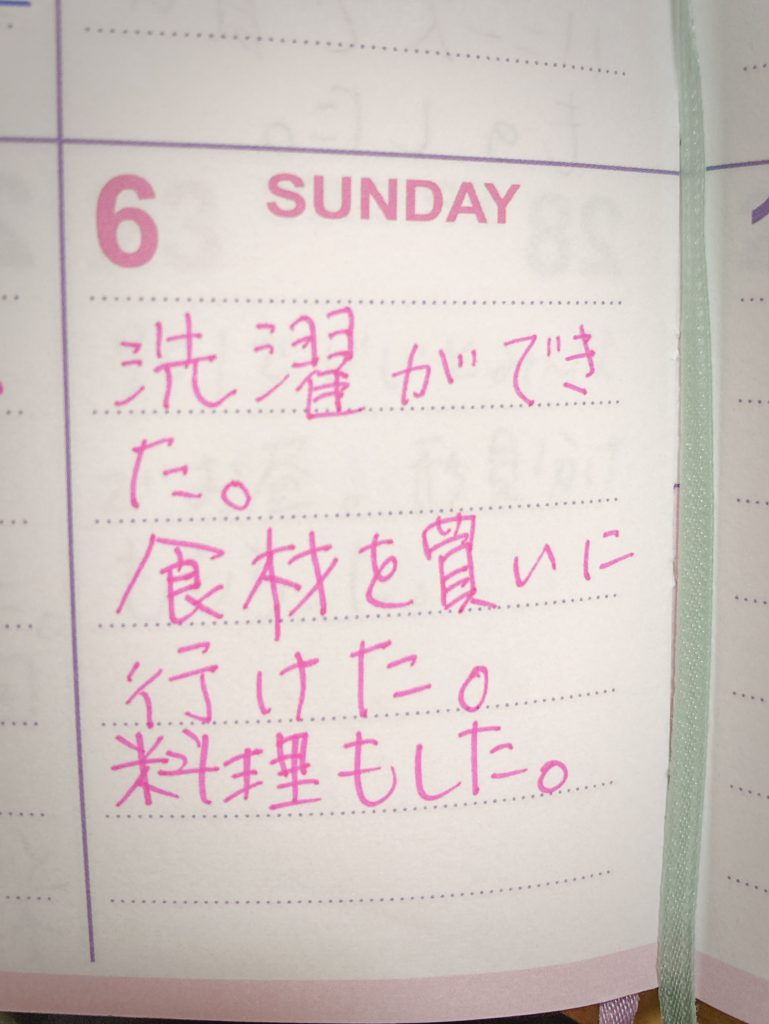 6 SUNDAY
洗濯ができ
た。
食材を買いに
行けた。
料理もした。